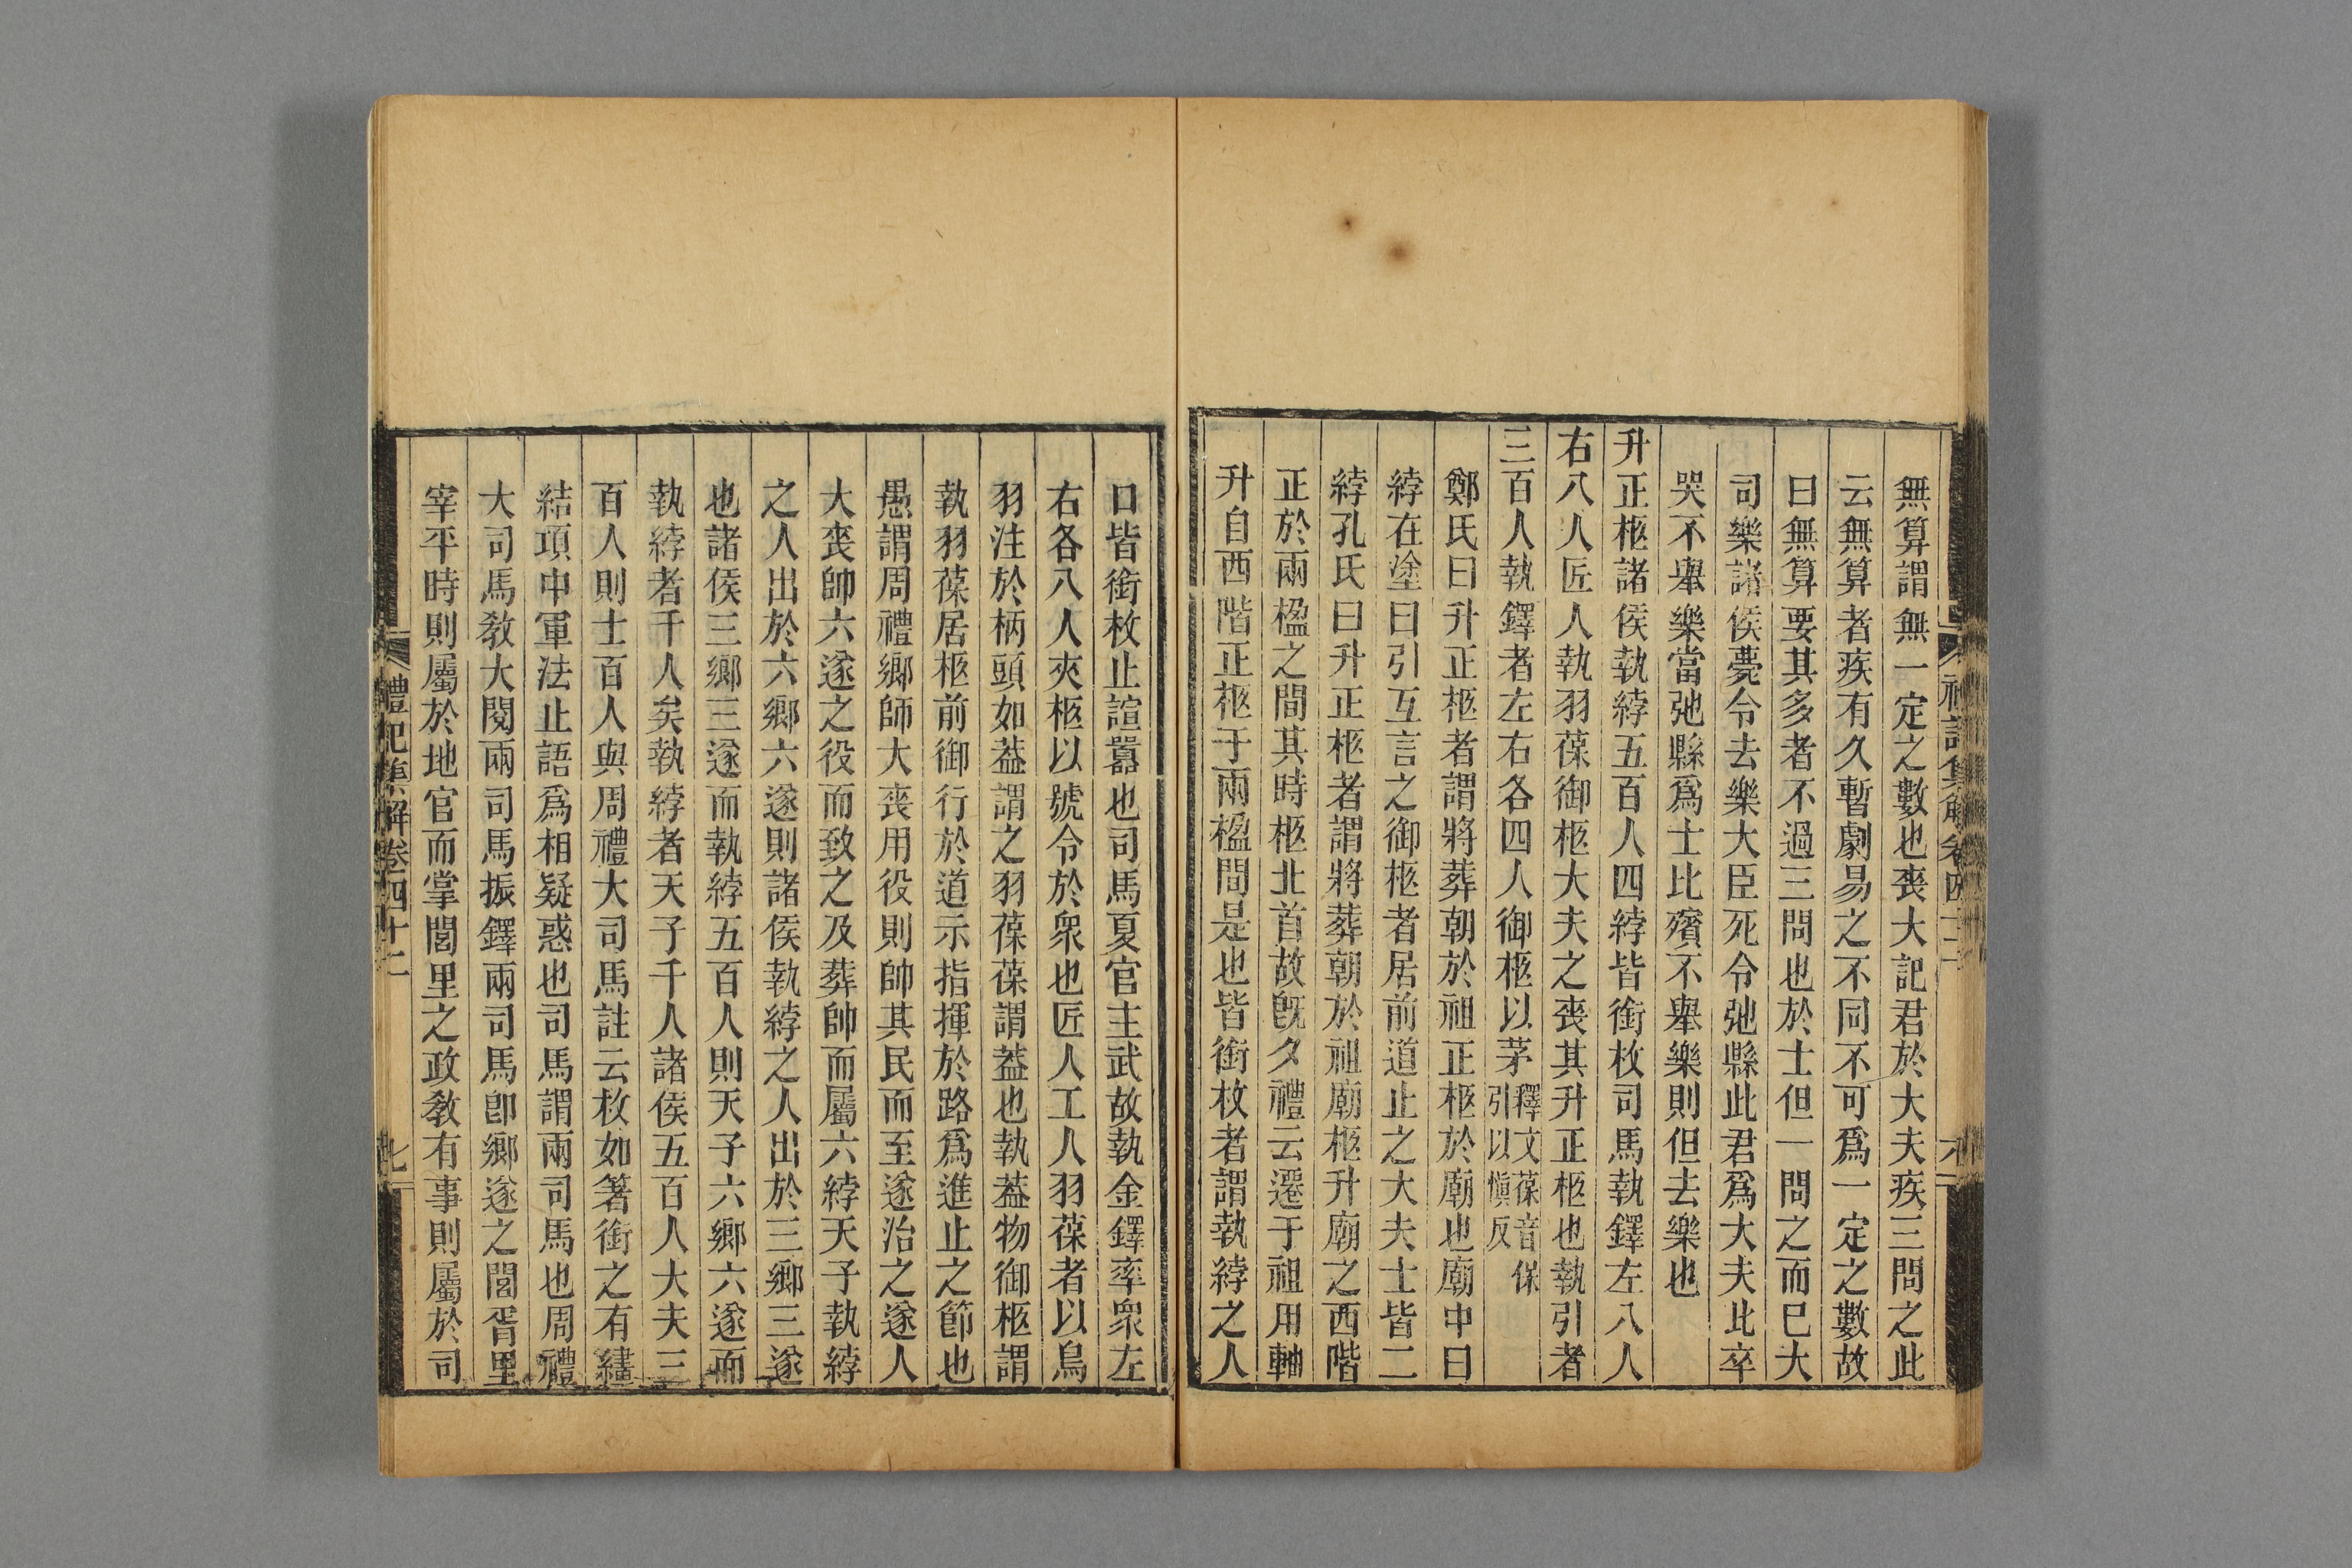 無算謂無一定之數也喪大記君於大夫疾三問之此
云無算者疾有久暫劇易之不同不可爲一定之數故
曰無算要其多者不過三問也於士但一問之而已大
司樂諸侯薨令去樂大臣死令弛縣此君爲大夫比卒
哭不舉樂當弛縣爲士比殯不舉樂則但去樂也
升正柩諸侯執綍五百人四綍皆銜枚司馬執鐸左八人
右八人匠人執羽葆御柩大夫之喪其升正柩也執引者
三百人執鐸者左右各四人御柩以茅釋文葆音保引以愼反
鄭氏曰升正柩者謂將葬朝於祖正柩於廟也廟中曰
綍在塗曰引互言之御柩者居前道止之大夫士皆二
綍孔氏曰升正柩者謂將葬朝於祖廟柩升廟之西階
正於兩楹之間其時柩北首故旣夕禮云遷于祖用軸
升自西階正柩于兩楹間是也皆銜枚者謂執綍之人
口皆銜枚止諠囂也司馬夏官主武故執金鐸率衆左
右各八人夾柩以號令於衆也匠人工人羽葆者以鳥
羽注於柄頭如葢謂之羽葆葆謂葢也執葢物御柩謂
執羽葆居柩前御行於道示指揮於路爲進止之節也
愚謂周禮鄉師大喪用役則帥其民而至遂治之遂人
大喪帥六遂之役而致之及葬帥而屬六綍天子執綍
之人出於六鄉六遂則諸侯執綍之人出於三鄉三遂
也諸侯三鄉三遂而執綍五百人則天子六鄉六遂而
執綍者千人矣執綍者天子千人諸侯五百人大夫三
百人則士百人與周禮大司馬註云枚如箸銜之有繣
結項中軍法止語爲相疑惑也司馬謂兩司馬也周禮
大司馬敎大閱兩司馬振鐸兩司馬卽鄉遂之閭胥里
宰平時則屬於地官而掌閭里之政敎有事則屬於司
禮記集解卷四十二
七